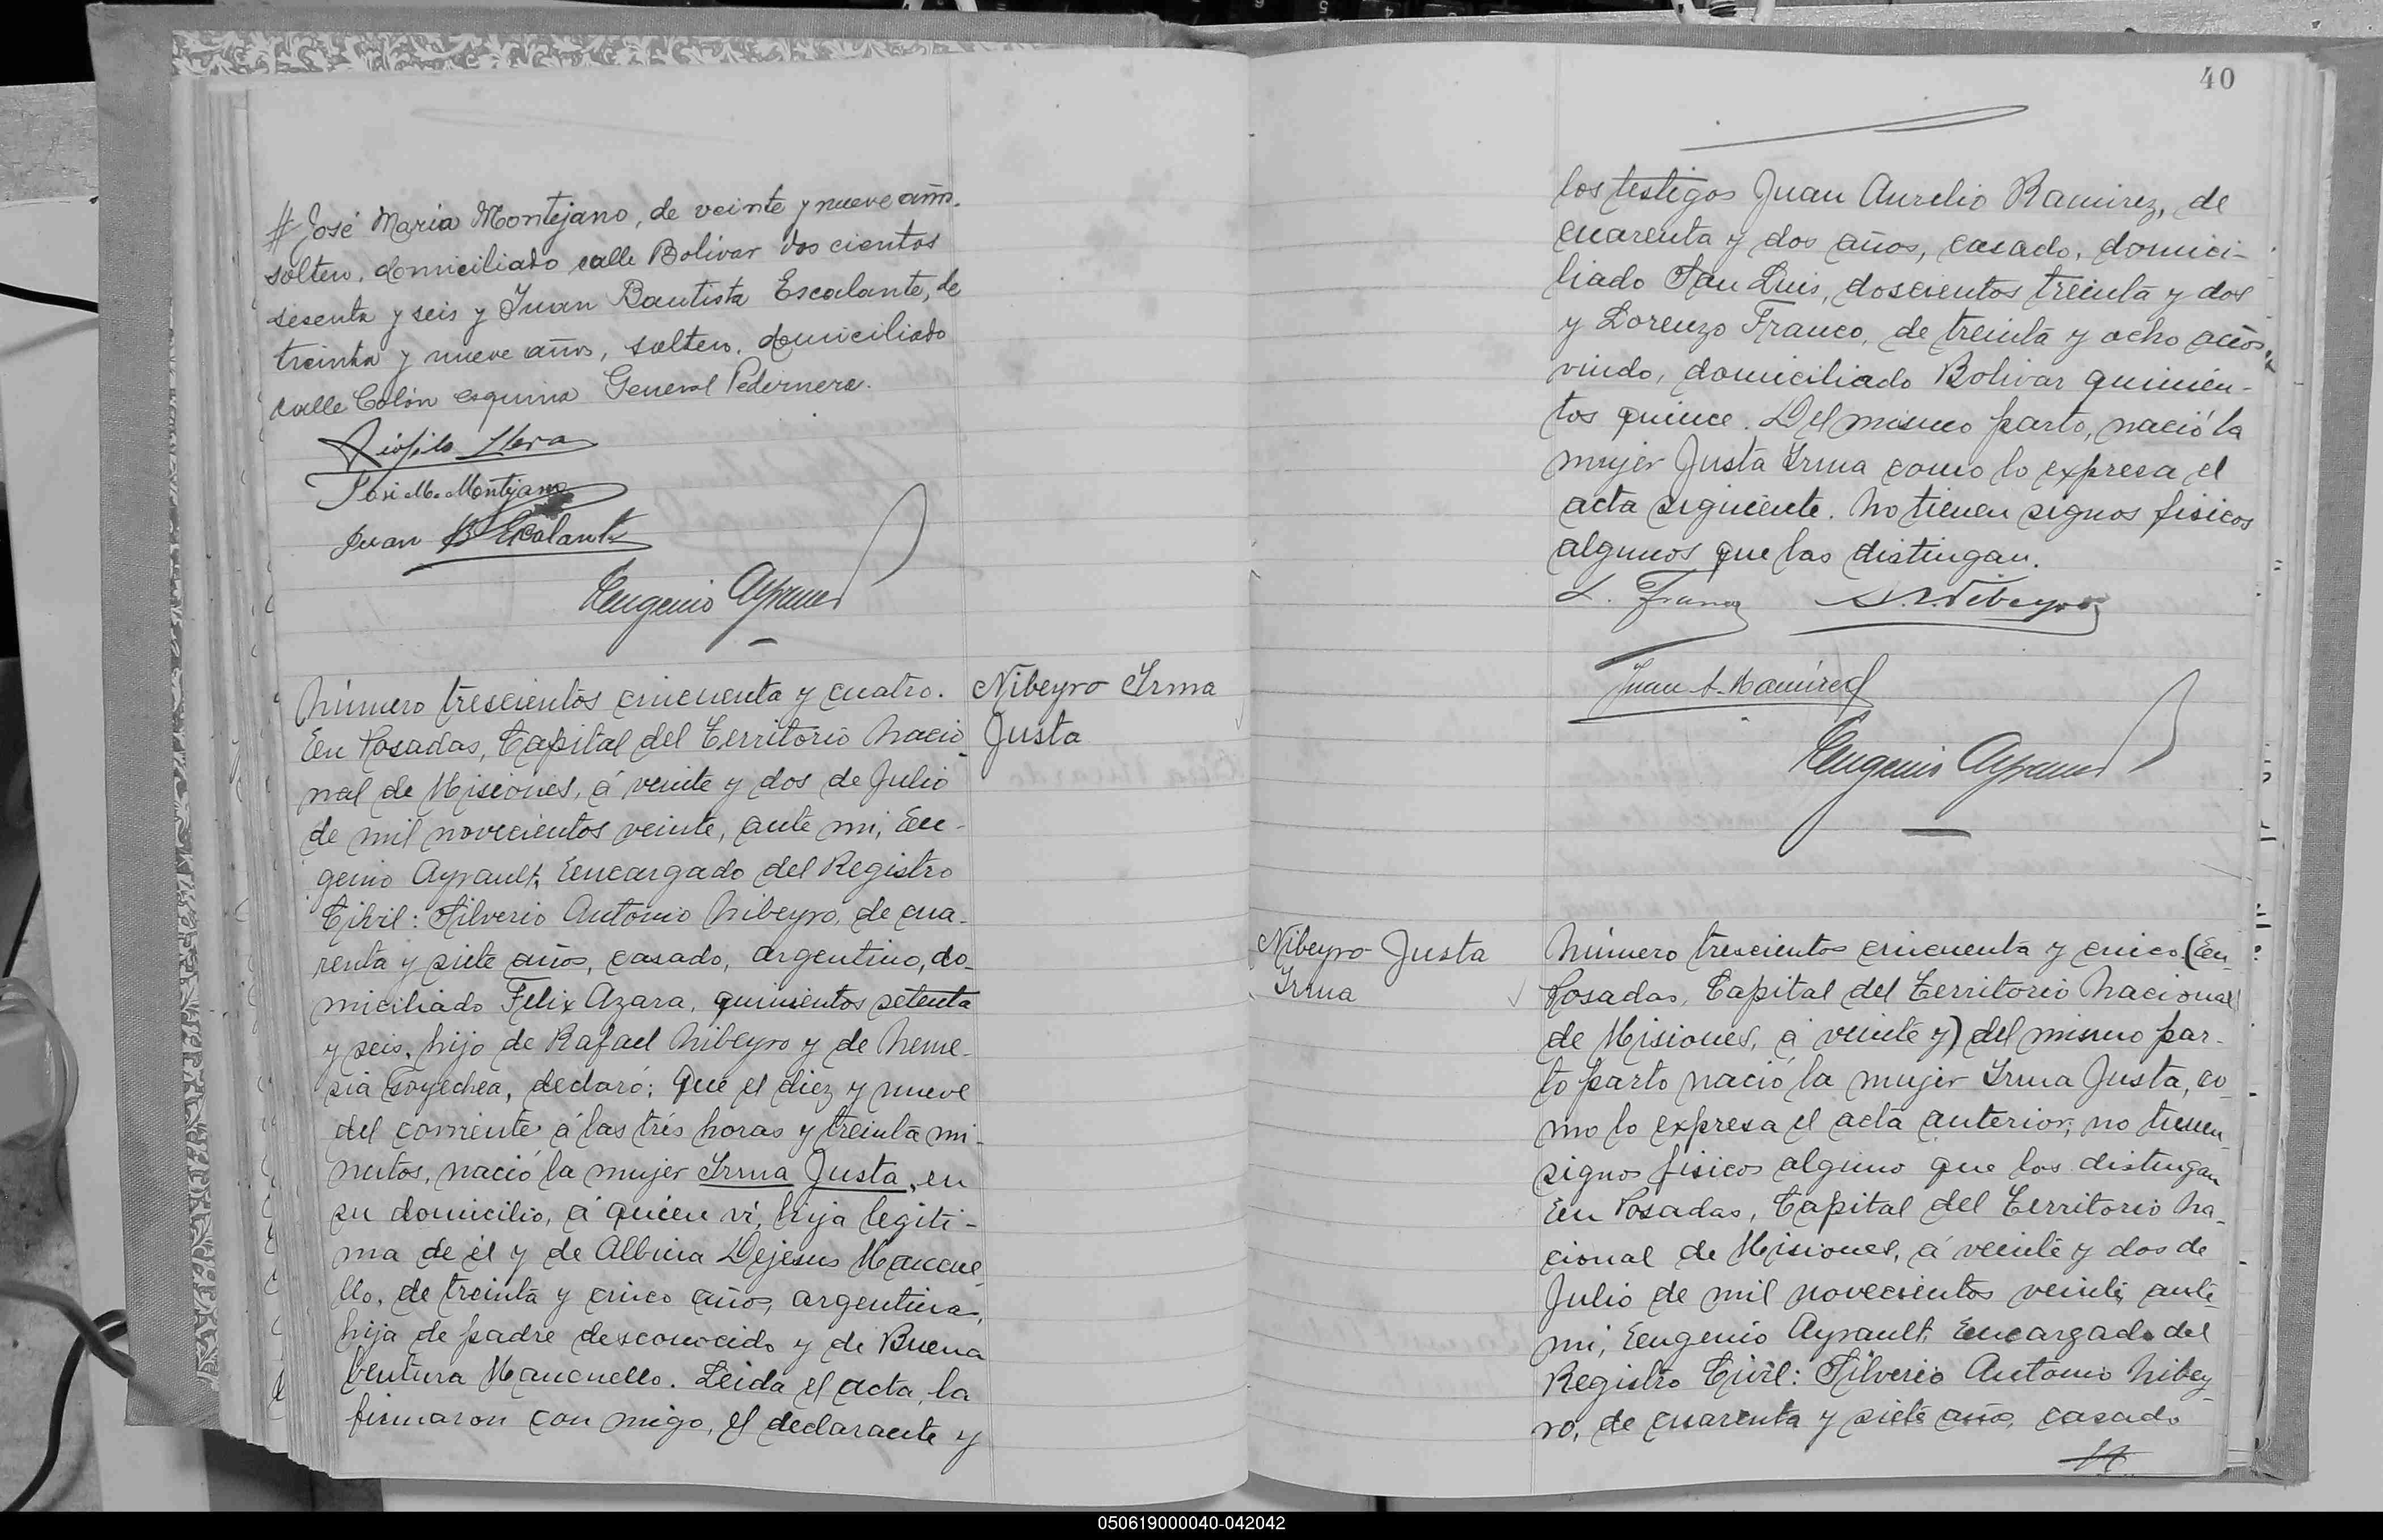 # José María Montejano, de veinte y nueve años.
soltero, domiciliado calle Bolivar dos cientos
sesenta y seis y Juan Bautista Escalante, de
treinta y nueve años, soltero, domiciliado
calle Colón esquina General Pedernera.
José M. Montejano
Juan B Escalante
Eugenio Ayrault
Número trescientos cincuenta y cuatro.
En Posadas, Capital del Territorio Nacio-
nal de Misiones, á veinte y dos de Julio
de mil novecientos veinte, ante mi, Eu-
genio Ayrault, Encargado del Registro
Civil: Silverio Antonio Nibeyro, de cua-
renta y siete años, casado, argentino, do-
miciliado Felix Azara, quinientos setenta
y seis, hijo de Rafael Nibeyro y de Neme-
sia Goyechea, declaró: Que el diez y nueve
del corriente á las trés horas y treinta mi-
nutos, nació la mujer Irma Justa, en
su domicilio, á quien ví, hija legiti-
ma de él y de Albina Dejesus Mancue-
llo, de treinta y cinco años, argentina,
hija de padre desconocido y de Buena
Ventura Mancuello. Leida el acta, la
firmaron con migo, el declarante y
Nibeyro Irma
Justa
40
los testigos Juan Aurelio Ramirez, de
cuarenta y dos años, casado, domici-
liado San Luis, doscientos treinta y dos
y Lorenzo Franco, de treinta y ocho años,
viudo, domiciliado Bolivar quinien-
tos quince. Del mismo parto, nació la
mujer Justa Irma como lo expresa el
acta siguiente. No tienen signos fisicos
algunos que las distingan.
L. Franco S. A. Nibeyro
Juan A. Ramírez
Eugenio Ayrault
Nibeyro Justa
Irma
Número trescientos cincuenta y cinco (En
Posadas, Capital del Territorio Nacional
de Misiones, á veinte y) del mismo par-
to parto nació la mujer Irma Justa, co-
mo lo expresa el acta anterior; no tienen
signos fisicos alguno que los distingan
En Posadas, Capital del Territorio Na-
cional de Misiones, á veinte y dos de
Julio de mil novecientos veinte, ante
mi, Eugenio Ayrault, Encargado del
Registro Civil: Silverio Antonio Nibey-
ro, de cuarenta y siete años, casado
050619000040-042042